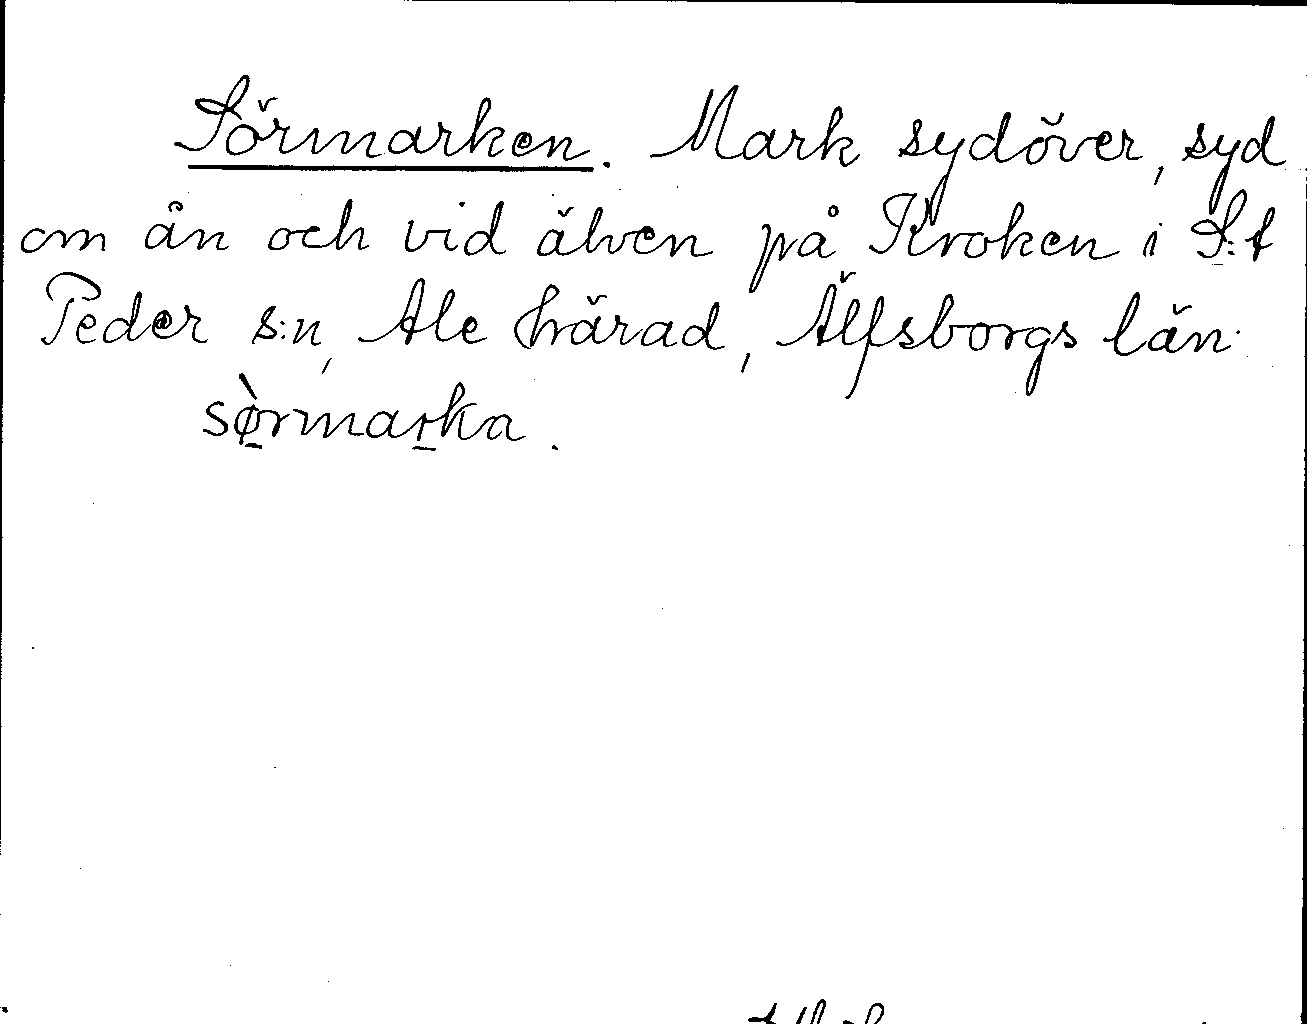 Sörmarken. Mark sydöver, syd
om ån och vid älven på Kroken i S:t
Peder s:n, Ale härad, Älfsborgs län.
sø̱̀rmaṟka.